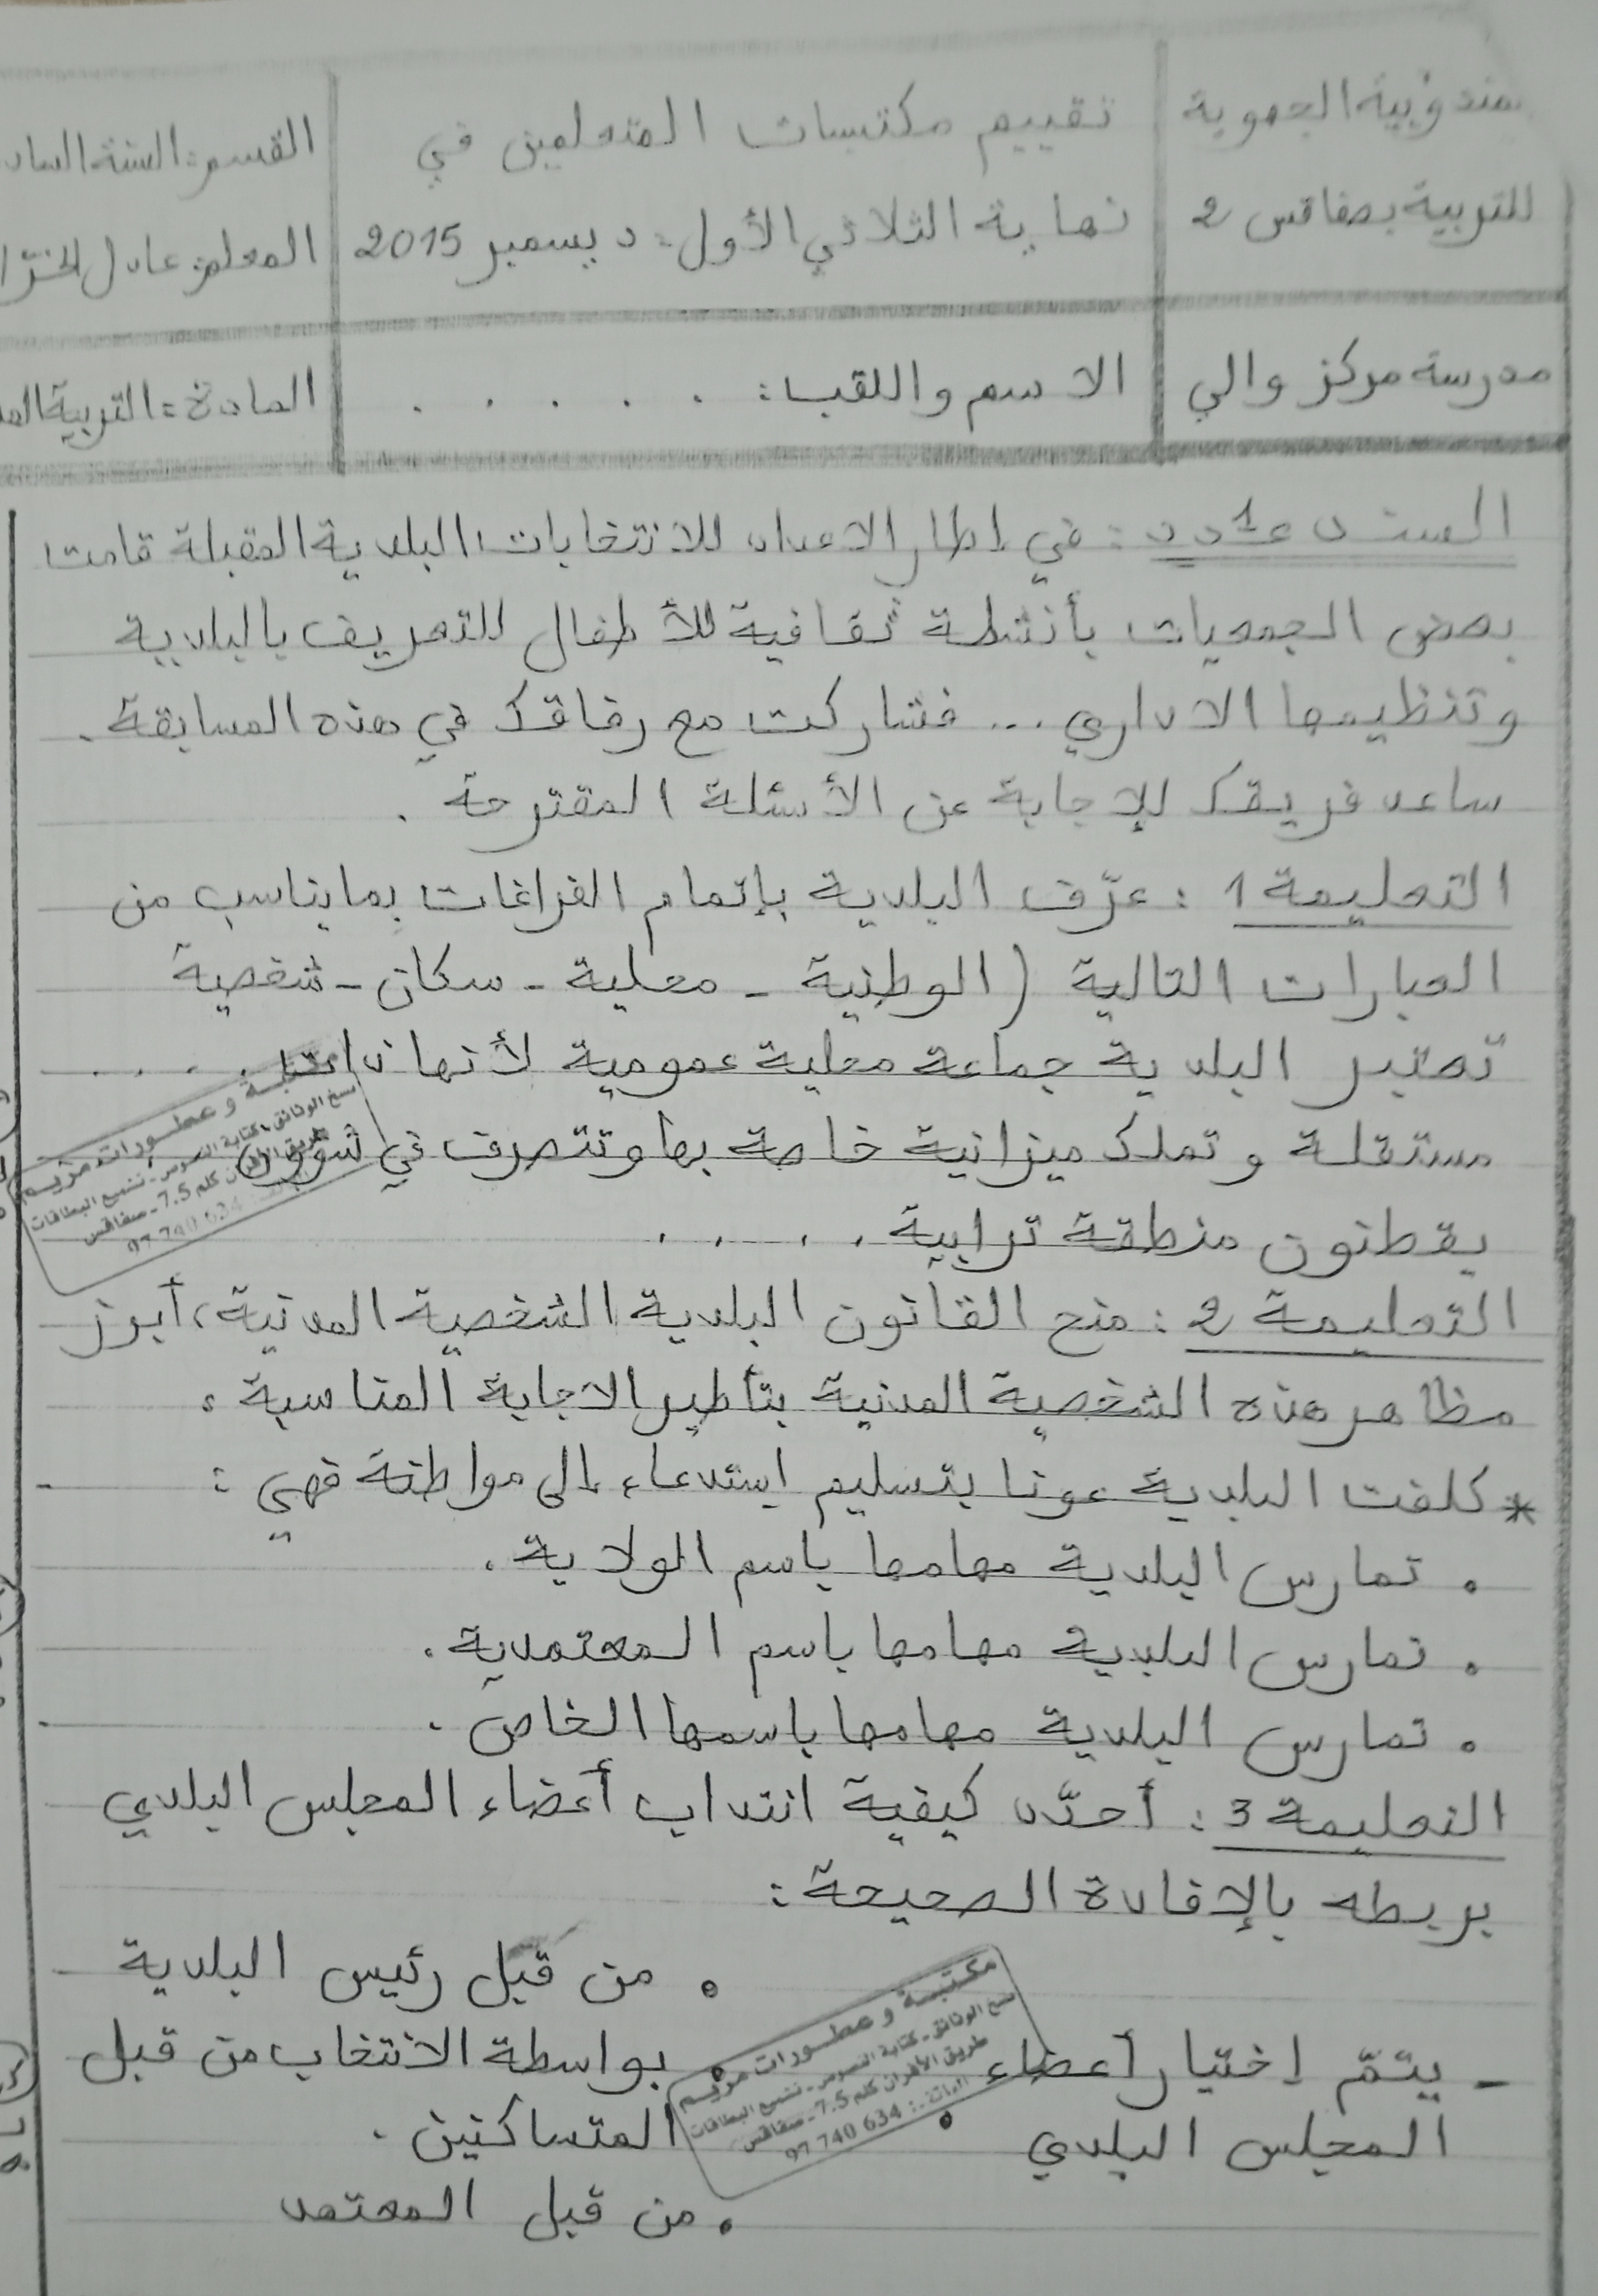 مندوبية الجهوية
للتربية بصفاقس 2
تقييم مكتسبات المتعلمين في
نهاية الثلاثي الأول: ديسمبر 2015
القسم: السنة الساد
المعلم: عادل الخرّا
مدرسة مركز والي
الاسم واللقب: . . . . . .
المادة: التربية المد
السند عدد 1: في إطار الاعداد للانتخابات البلدية المقبلة قامت
بعض الجمعيات بأنشطة ثقافية للأطفال للتعريف بالبلدية
وتنظيمها الاداري ... فشاركت مع رفاقك في هذه المسابقة.
ساعد فريقك للإجابة عن الأسئلة المقترحة.
التعليمة 1: عرّف البلدية بإتمام الفراغات بما يناسب من
العبارات التالية (الوطنية - محلية - سكان - شخصية
تعتبر البلدية جماعة محلية عمومية لأنها ذات . . . . .
مستقلة و تملك ميزانية خاصة بها وتتصرف في شؤون
يقطنون منطقة ترابية . . . . .
التعليمة 2: منح القانون البلدية الشخصية المدنية، أبرز
مظاهر هذه الشخصية المدنية بتأطير الاجابة المناسبة:
* كلفت البلدية عونا بتسليم استدعاء إلى مواطنة فهي:
• تمارس البلدية مهامها باسم الولاية.
• تمارس البلدية مهامها باسم المعتمدية.
• تمارس البلدية مهامها باسمها الخاص.
التعليمة 3: أحدّد كيفية انتداب أعضاء المجلس البلدي
بربطه بالإفادة الصحيحة:
• من قبل رئيس البلدية
- يتمّ إختيار أعضاء • بواسطة الانتخاب من قبل
المجلس البلدي • المتساكنين.
• من قبل المعتمد
مكتبة و عطورات مريم
نسخ الوثائق - كتابة النصوص - تشميع البطاقات
طريق الأفران كلم 7.5 - صفاقس
الهاتف: 97 740 634